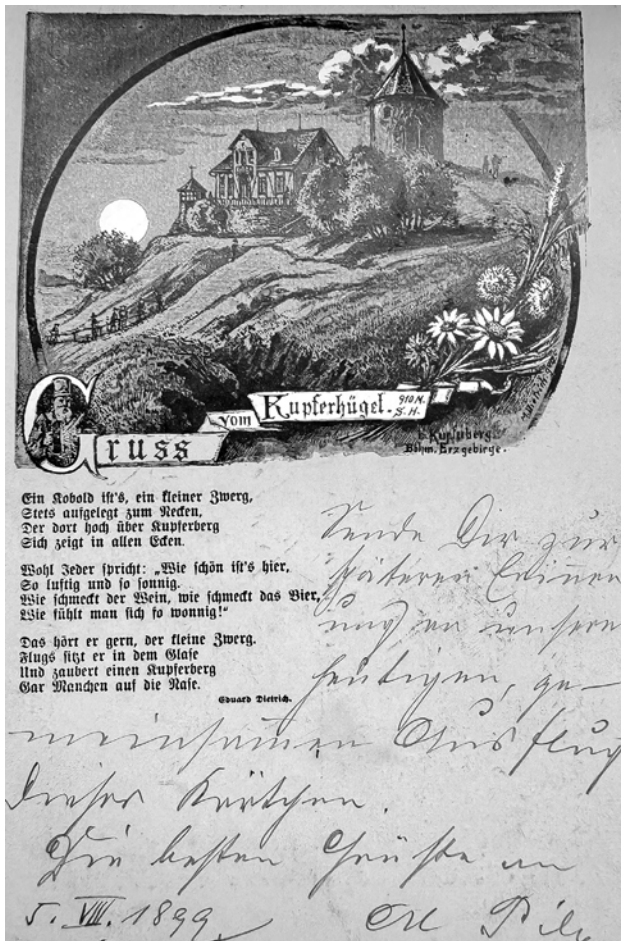 Gruss vom Kupferhügel. 910 M. S. H.
b. Kupferberg
Böhm. Erzgebirge.
Ein Kobold ist's, ein kleiner Zwerg,
Stets aufgelegt zum Necken,
Der dort hoch über Kupferberg
Sich zeigt in allen Ecken.
Wohl Jeder spricht: „Wie schön ist's hier,
So luftig und so sonnig.
Wie schmeckt der Wein, wie schmeckt das Bier,
Wie fühlt man sich so wonnig!"
Das hört er gern, der kleine Zwerg.
Flugs sitzt er in dem Glase
Und zaubert einen Kupferberg
Gar Manchen auf die Nase.
Eduard Dietrich.
Sende Dir zur
späteren Erinner
ung an unsern
heutigen, ge-
meinsamen Ausflug
dieses Kärtchen.
Die besten Grüße an
5. VIII. 1899